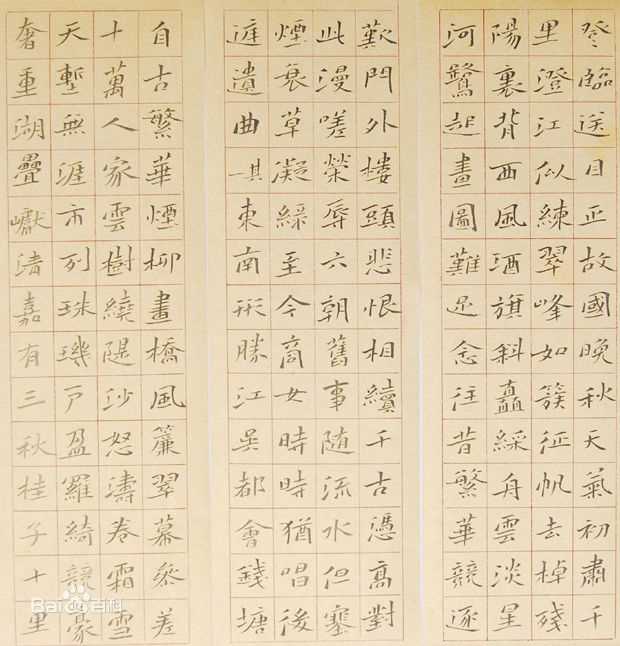 登臨送目正故國晚秋天氣初肅千
里澄江似練翠峰如簇征帆去棹殘
陽裏背西風酒旗斜矗綵舟雲淡星
河鷺起畫圖難足念往昔繁華競逐
歎門外樓頭悲恨相續千古憑高對
此漫嗟榮辱六朝舊事隨流水但寒
煙衰草凝綠至今商女時時猶唱後
庭遺曲其東南形勝江吳都會錢塘
自古繁華煙柳畫橋風簾翠幕參差
十萬人家雲樹繞隄沙怒濤卷霜雪
天塹無涯市列珠璣戶盈羅綺競豪
奢重湖疊巘清嘉有三秋桂子十里
Baidu百科